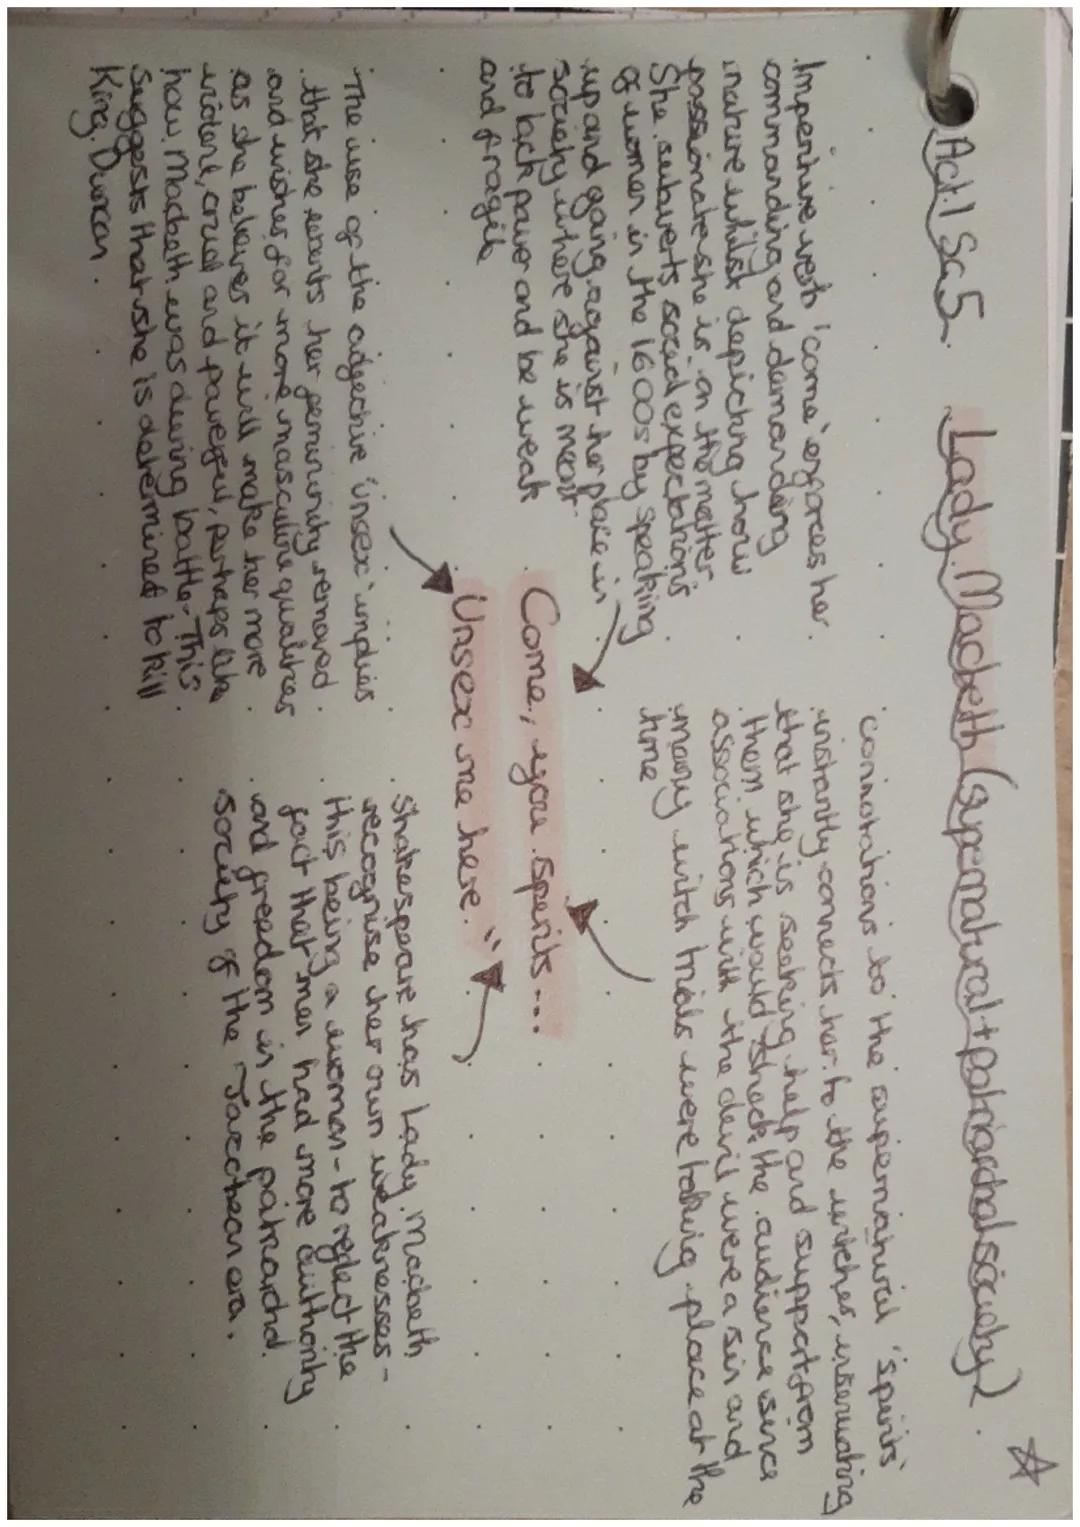 Act 1 Sc 5. Lady Macbeth (supernatural + patriarchal society)
Imperitive verb 'come' enforces her
commanding and demanding
nature whilst depicting how
passionate she is on the matter
She subverts social expectations
of women in the 1600s by speaking
up and going against her place in
society where she is meant
to lack power and be weak
and fragile
connotations to the supernatural 'spirits'
instantly connects her to the witches, insinuating
that she is seeking help and support from
them which would shock the audience since
associations with the devil were a sin and
many witch trials were taking place at the
time
Come, you spirits...
Unsex me here."
The use of the adjective 'unsex' implies
that she wants her femininity removed
and wishes for more masculine qualities
as she believes it will make her more
violent, cruel and powerful, perhaps like
how Macbeth was during battle. This
suggests that she is determined to kill
King Duncan.
Shakespeare has Lady Macbeth
recognise her own weaknesses -
this being a woman - to reglect the
fact that men had more authority
and freedom in the patriarchal
society of the Jacobean era.